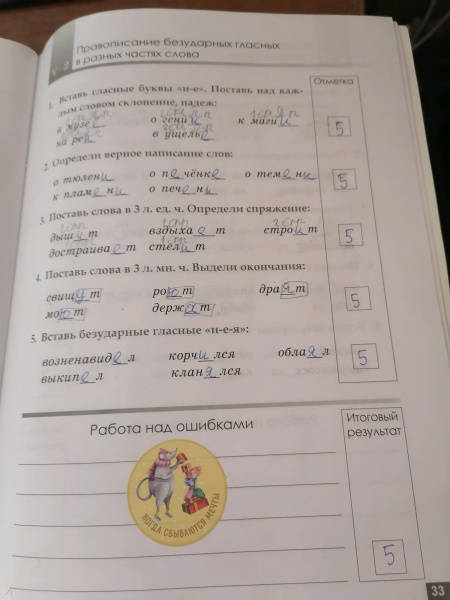 Правописание безударных гласных
V-2 в разных частях слова
Отметка
1. Вставь гласные буквы «и-е». Поставь над каж-
дым словом склонение, падеж:
в музее о гении к магии
на реки в ущелье
5
2. Определи верное написание слов:
о тюлени о печёнке о темени
к пламени о печени
5
3. Поставь слова в 3 л. ед. ч. Определи спряжение:
дышит вздыхает строит
достраивает стелит
5
4. Поставь слова в 3 л. мн. ч. Выдели окончания:
свищут роют драят
моют держат
5
5. Вставь безударные гласные «и-е-я»:
возненавидел корчился облаял
выкипел кланялся
5
Работа над ошибками
Итоговый
результат
КОГДА СБЫВАЮТСЯ МЕЧТЫ
5
33